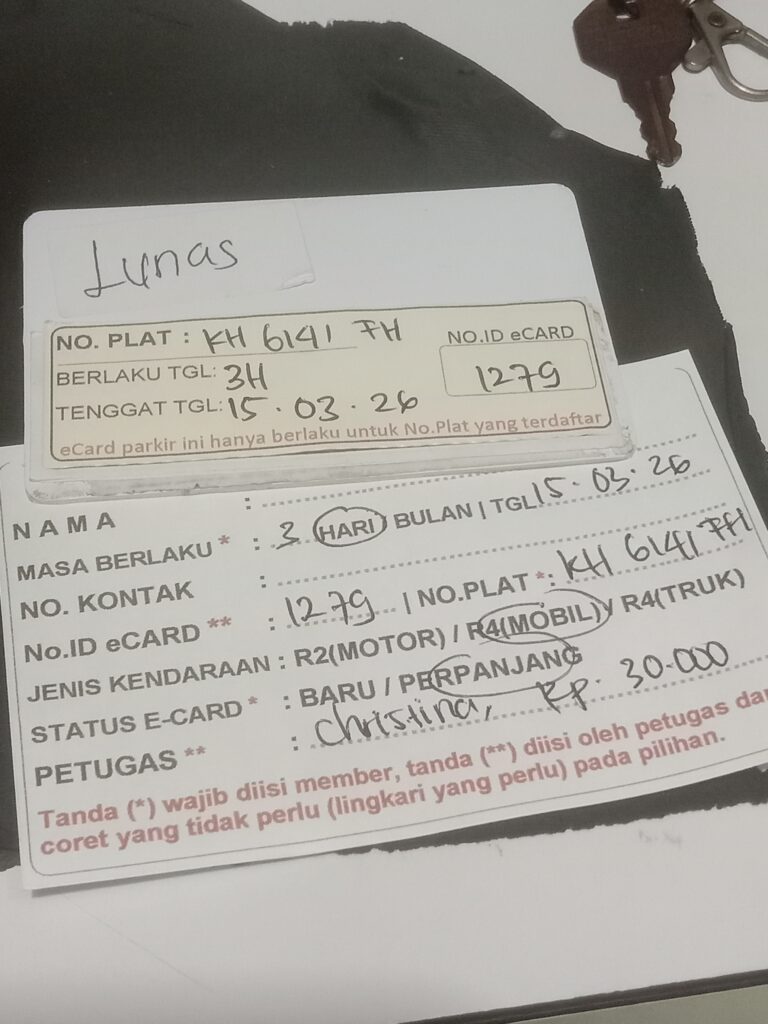 Lunas
NO. PLAT : KH 6141 FH
NO.ID eCARD
1279
BERLAKU TGL: 3H
TENGGAT TGL: 15.03.26
eCard parkir ini hanya berlaku untuk No.Plat yang terdaftar
NAMA :
MASA BERLAKU * : 3 HARI / BULAN | TGL 15.03.26
NO. KONTAK :
No.ID eCARD ** : 1279 | NO.PLAT *: KH 6141 FH
JENIS KENDARAAN : R2(MOTOR) / R4(MOBIL) / R4(TRUK)
STATUS E-CARD * : BARU / PERPANJANG
PETUGAS ** : Christina, Rp. 30.000
Tanda (*) wajib diisi member, tanda (**) diisi oleh petugas
coret yang tidak perlu (lingkari yang perlu) pada pilihan.